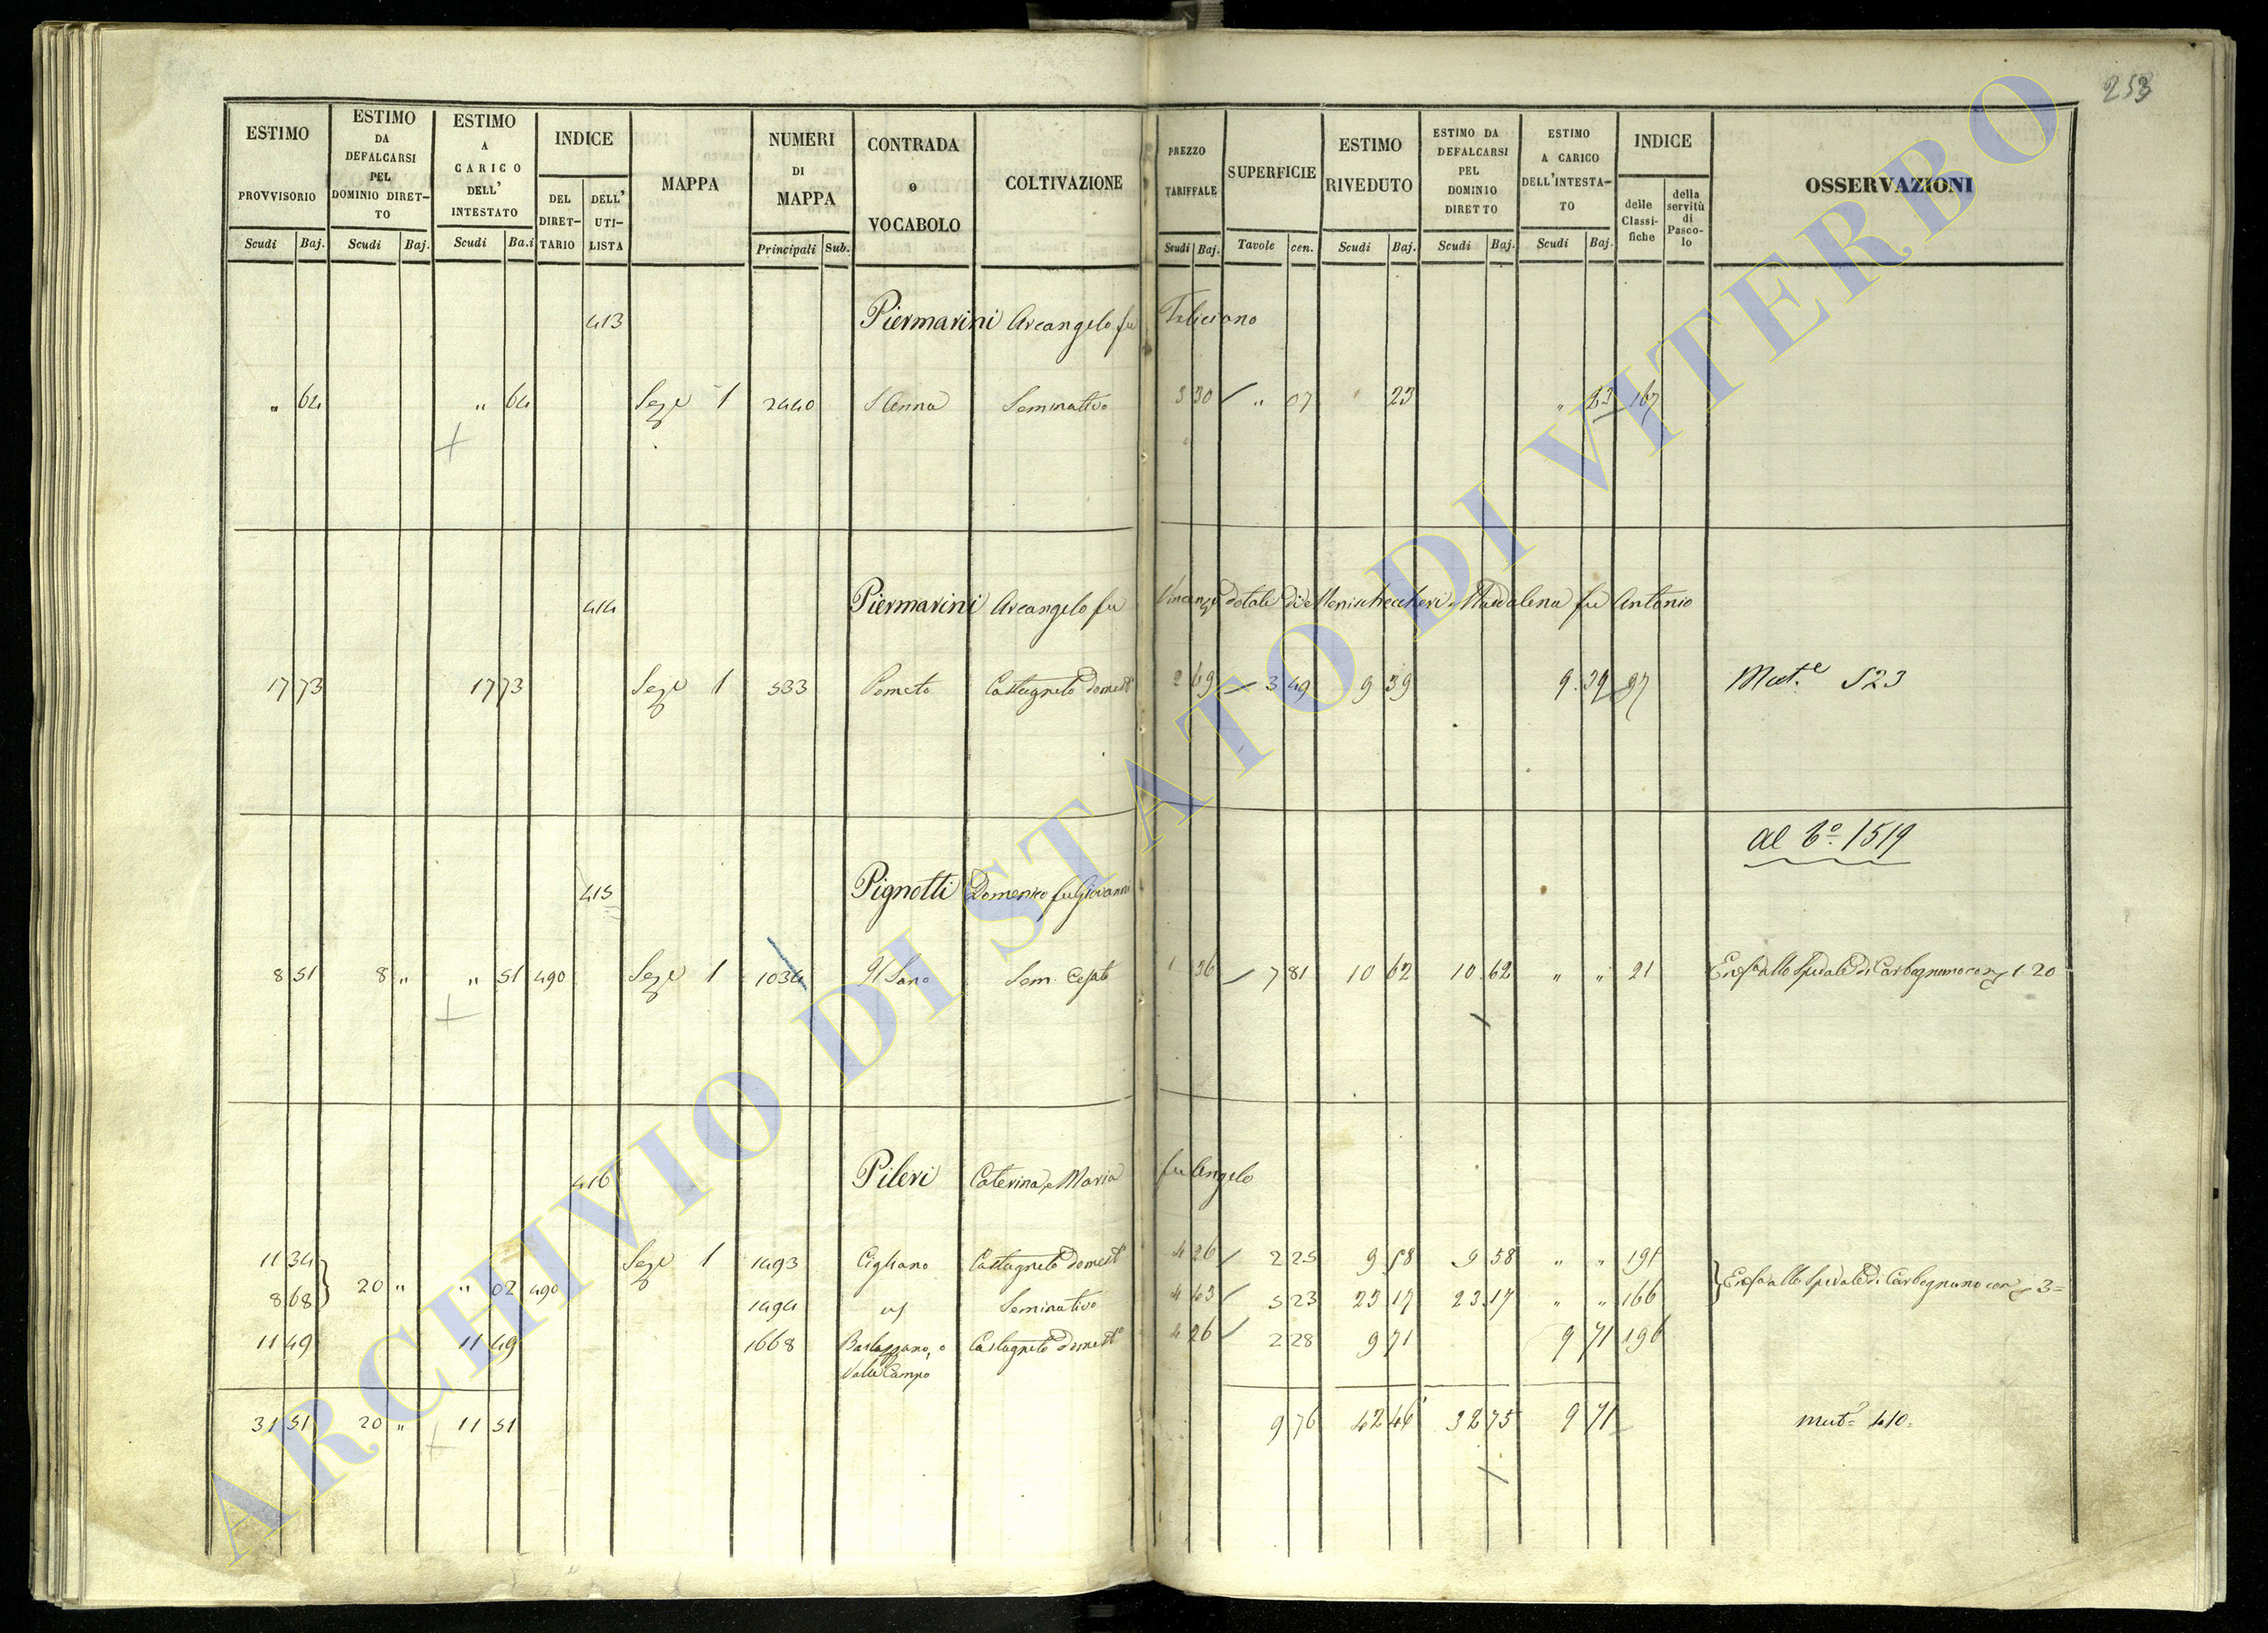 253
ESTIMO PROVVISORIO Scudi Baj.
ESTIMO DA DEFALCARSI PEL DOMINIO DIRETTO Scudi Baj.
ESTIMO A CARICO DELL' INTESTATO Scudi Ba.i
INDICE DEL DIRETTARIO DELL' UTILISTA
MAPPA
NUMERI DI MAPPA Principali Sub.
CONTRADA o VOCABOLO
COLTIVAZIONE
PREZZO TARIFFALE Scudi Baj.
SUPERFICIE Tavole cen.
ESTIMO RIVEDUTO Scudi Baj.
ESTIMO DA DEFALCARSI PEL DOMINIO DIRETTO Scudi Baj.
ESTIMO A CARICO DELL'INTESTATO Scudi Baj.
INDICE delle Classifiche della servitù di Pascolo
OSSERVAZIONI
413 Piermarini Arcangelo fu Feliciano
" 64 " 64 Seze 1 2440 S Anna Seminativo 3 30 " 07 23 " 23 167
414 Piermarini Arcangelo fu Vincenzo dotale di Menicheccheri Maddalena fu Antonio
17 73 17 73 Seze 1 533 Pometo Castagneto domest 2 69 3 49 9 39 9 39 97 Mut.e 523
al 6o. 1519
415 Pignotti Domenico fu Giovanni
8 51 8 " " 51 490 Seze 1 1034 Sano Sem. Cesato 1 36 7 81 10 62 10 62 " " 21 Enf. allo Spedale di Carbognano con 1 20
416 Pileri Caterina e Maria fu Angelo
11 34 Seze 1 1493 Cigliano Castagneto domest 4 26 2 25 9 58 9 58 " " 195
20 " " 02 490 Enf. allo Spedale di Carbognano con 3=
8 68 1494 Seminativo 4 43 5 23 23 17 23 17 " " 166
11 49 11 49 1668 o Valle Campo Castagneto domest 4 26 2 28 9 71 9 71 196
31 51 20 " 11 51 9 76 42 46 32 75 9 71 mut= 410=
ARCHIVIO DI STATO DI VITERBO